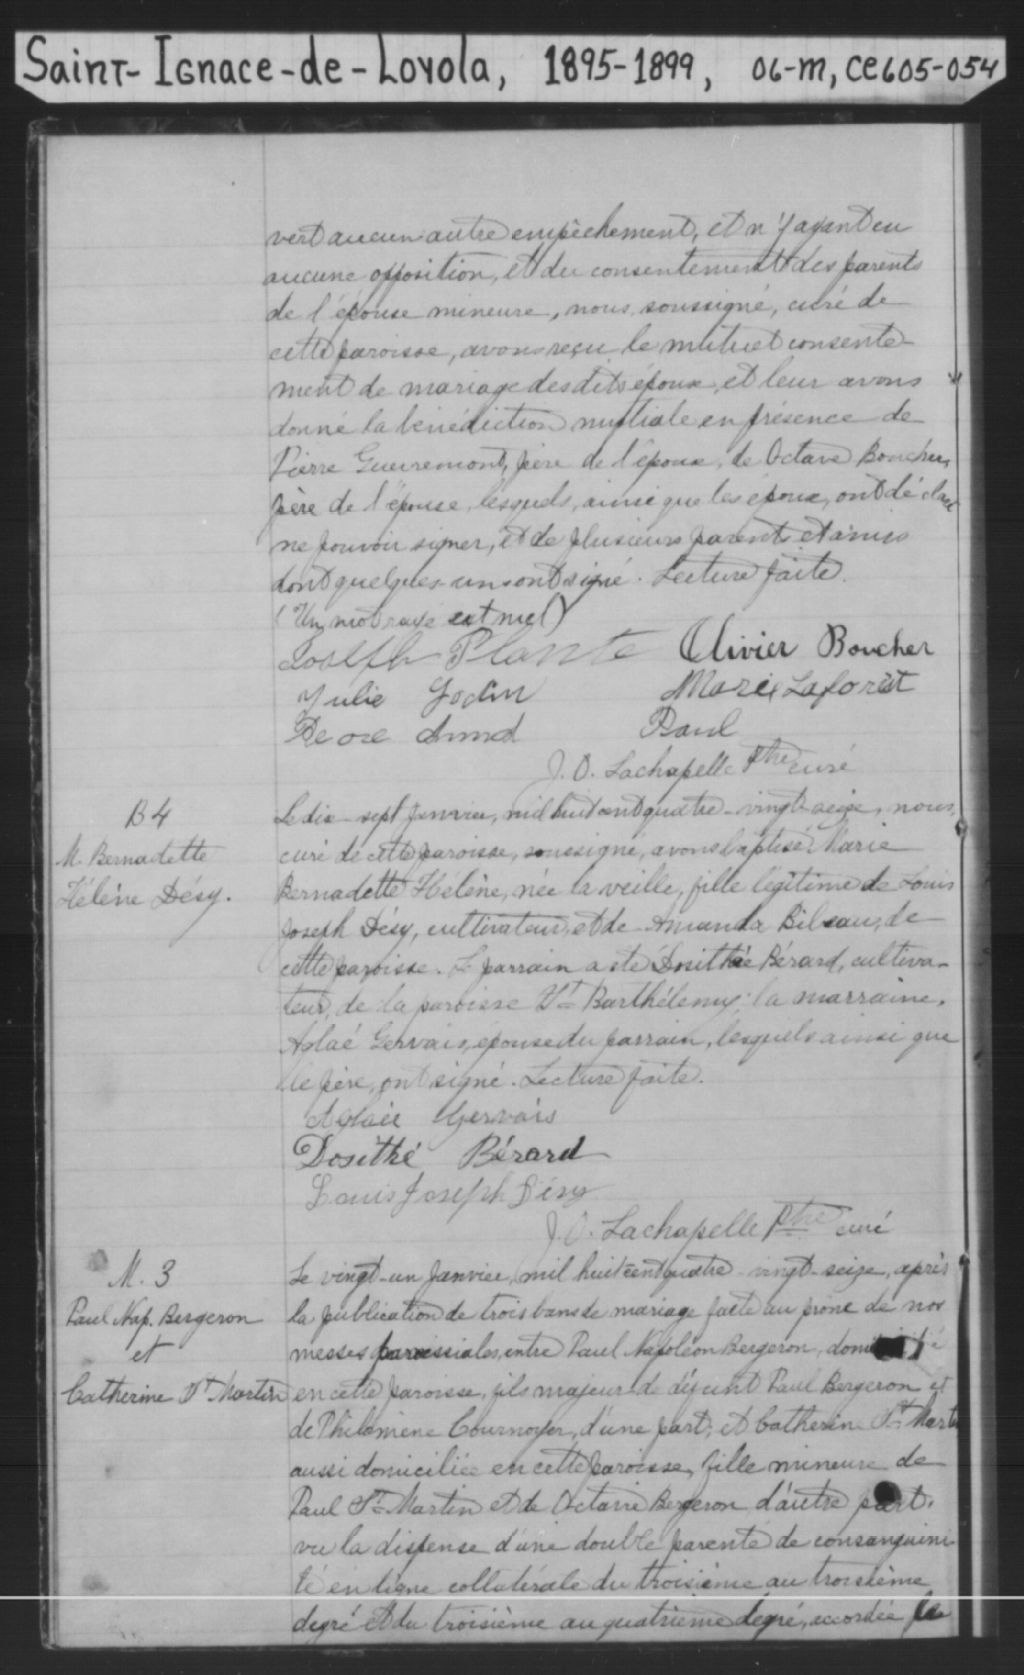 Saint-Ignace-de-Loyola, 1895-1899, 06-M, CE605-054
vert aucun autre empêchement, et n'y ayant eu
aucune opposition, et du consentement des parents
de l'épouse mineure, nous, soussigné, curé de
cette paroisse, avons reçu le mutuel consente-
ment de mariage desdits époux, et leur avons
donné la bénédiction nuptiale en présence de
Pierre Guevremont, père de l'époux, de Octave Boucher,
père de l'épouse, lesquels, ainsi que les époux, ont déclaré
ne pouvoir signer, et de plusieurs parents et amis
dont quelques-uns ont signé. Lecture faite.
(Un mot rayé est nul)
Joseph Plante Olivier Boucher
Julie Godin Marie Laforest
Paul
J. O. Lachapelle Ptre curé
B4
M. Bernadette
Hélène Désy.
Le dix-sept Janvier, mil huit cent quatre-vingt-seize, nous,
curé de cette paroisse, soussigné, avons baptisé Marie
Bernadette Hélène, née la veille, fille légitime de Louis
Joseph Désy, cultivateur, et de Amanda Bibeau, de
cette paroisse. Le parrain a été Dosithée Bérard, cultiva-
teur, de la paroisse St Barthélemy; la marraine,
Aglaé Gervais, épouse du parrain, lesquels ainsi que
le père, ont signé. Lecture faite.
Aglaée Gervais
Dosithé Bérard
Louis Joseph Désy
J. O. Lachapelle Ptre curé
M. 3
Paul Nap. Bergeron
et
Catherine St Martin
Le vingt-un Janvier, mil huit cent quatre-vingt-seize, après
la publication de trois bans de mariage faite au prone de nos
messes paroissiales, entre Paul Napoléon Bergeron, domicilié
en cette paroisse, fils majeur de défunt Paul Bergeron et
de Philomène Cournoyer, d'une part; et Catherine St Martin
aussi domiciliée en cette paroisse, fille mineure de
Paul St Martin et de Octavie Bergeron d'autre part.
vu la dispense d'une double parenté de consanguini-
té en ligne collatérale du troisième au troisième
degré et du troisième au quatrième degré, accordée